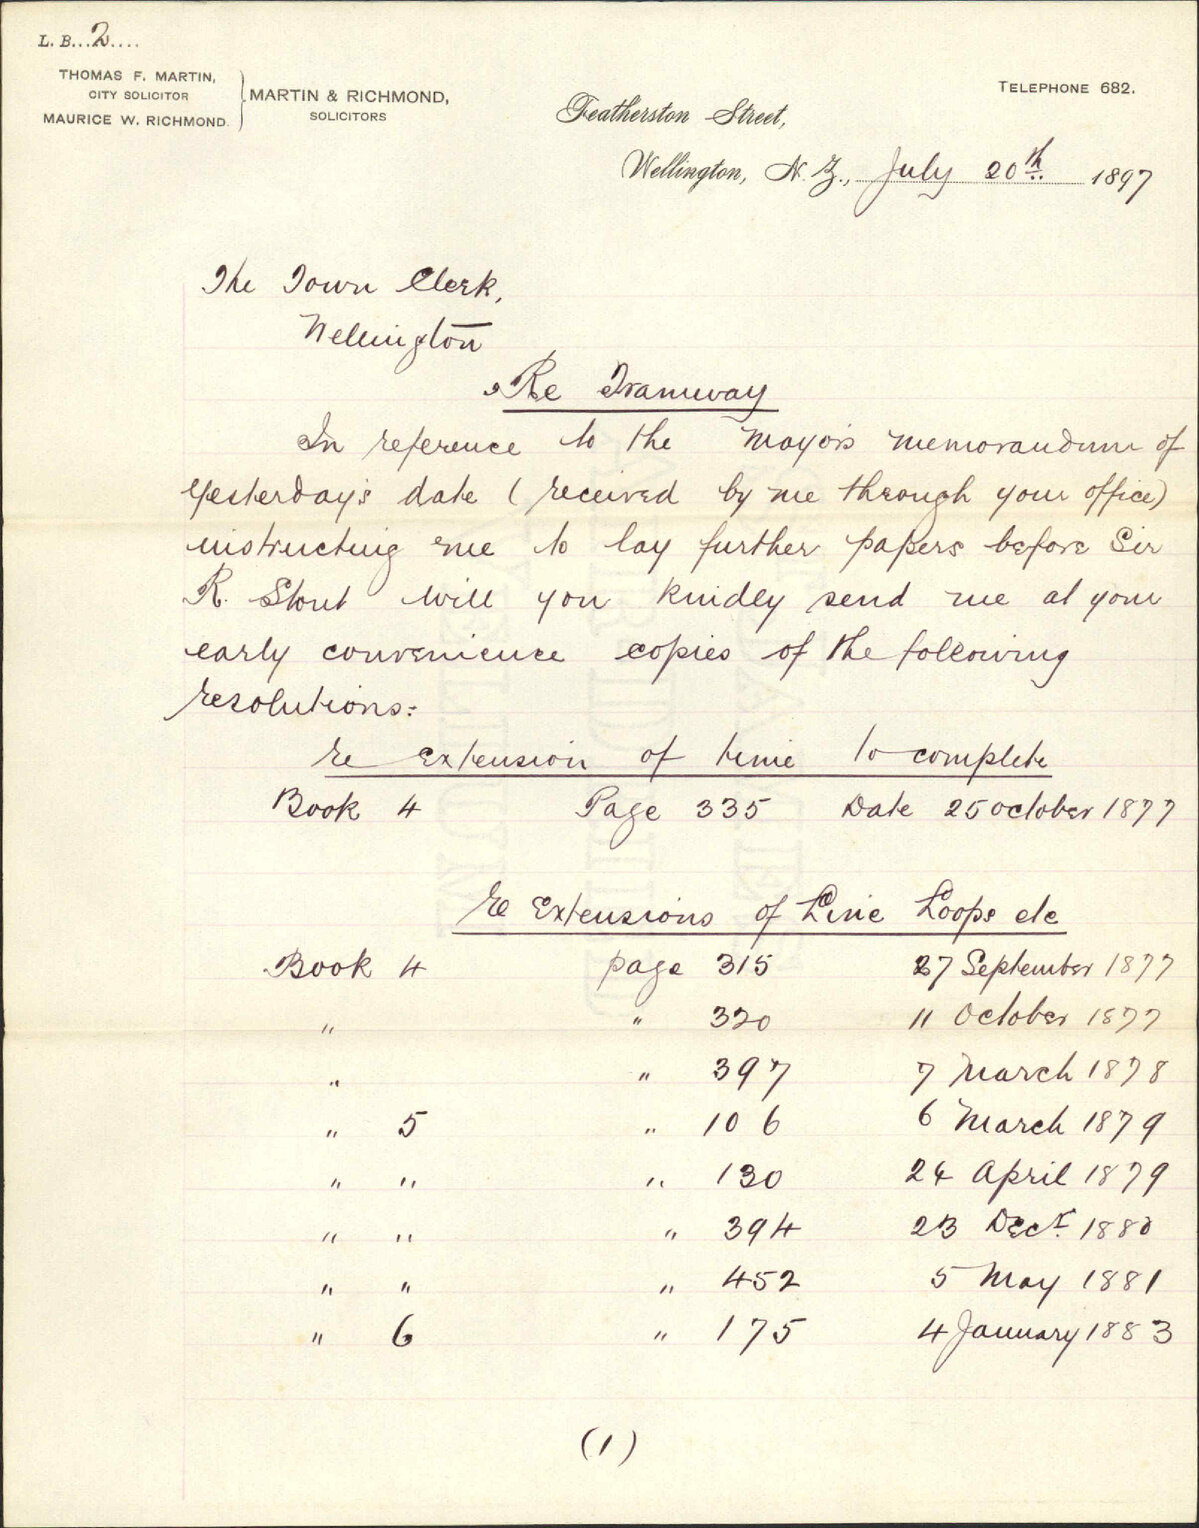 L. B...2....
THOMAS F. MARTIN,
CITY SOLICITOR
MAURICE W. RICHMOND.
MARTIN & RICHMOND,
SOLICITORS
TELEPHONE 682.
Featherston Street,
Wellington, N.Z., July 20th. 1897
The Town Clerk,
Wellington
Re Tramway
In reference to the Mayors memorandum of
yesterday's date (received by me through your office)
instructing me to lay further papers before Sir
R. Stout will you kindly send me at your
early convenience copies of the following
resolutions:
re extension of time to complete
Book 4 Page 335 Date 25 October 1877
re Extensions of Line Loops etc
Book 4 page 315 27 September 1877
" " 320 11 October 1877
" " 397 7 March 1878
" 5 " 106 6 March 1879
" " " 130 24 April 1879
" " " 394 23 Decr. 1880
" " " 452 5 May 1881
" 6 " 175 4 January 1883
(1)